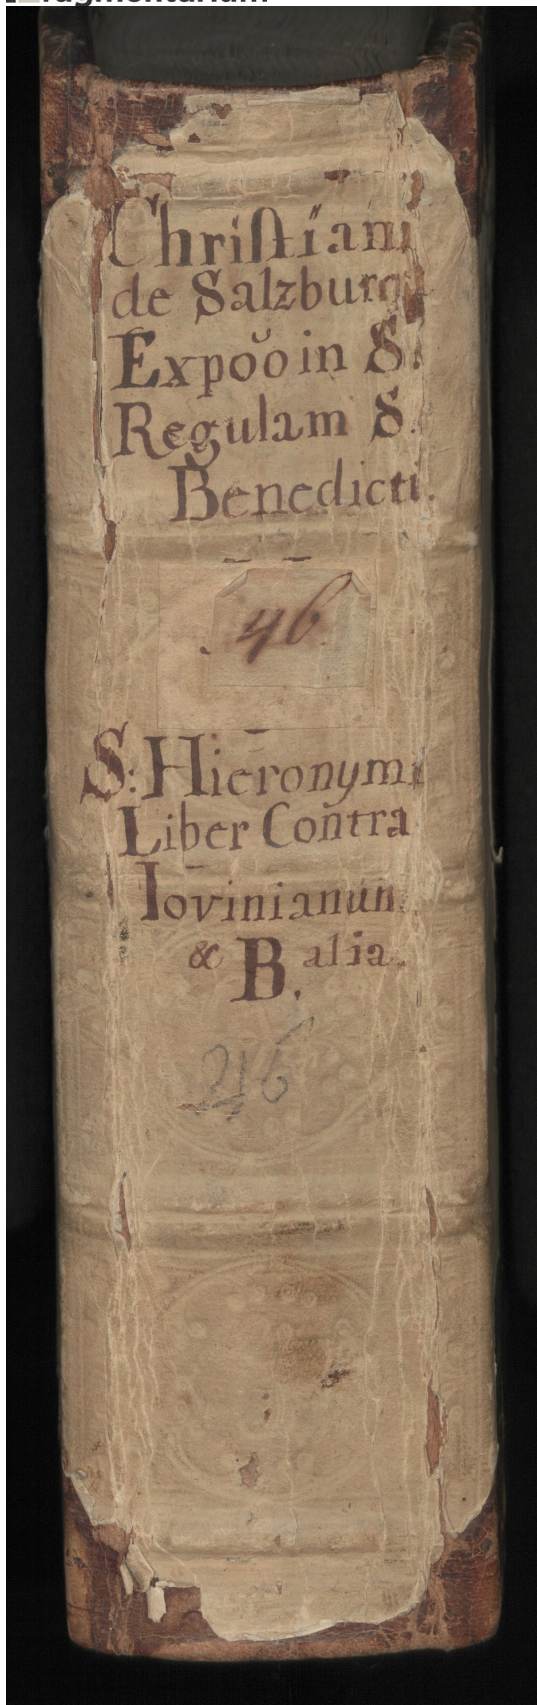 Christiani
de Salzburga
Expoo in S.
Regulam S.
Benedicti.
46
S: Hieronymi
Liber Contra
Iovinianum
& B. alia.
216